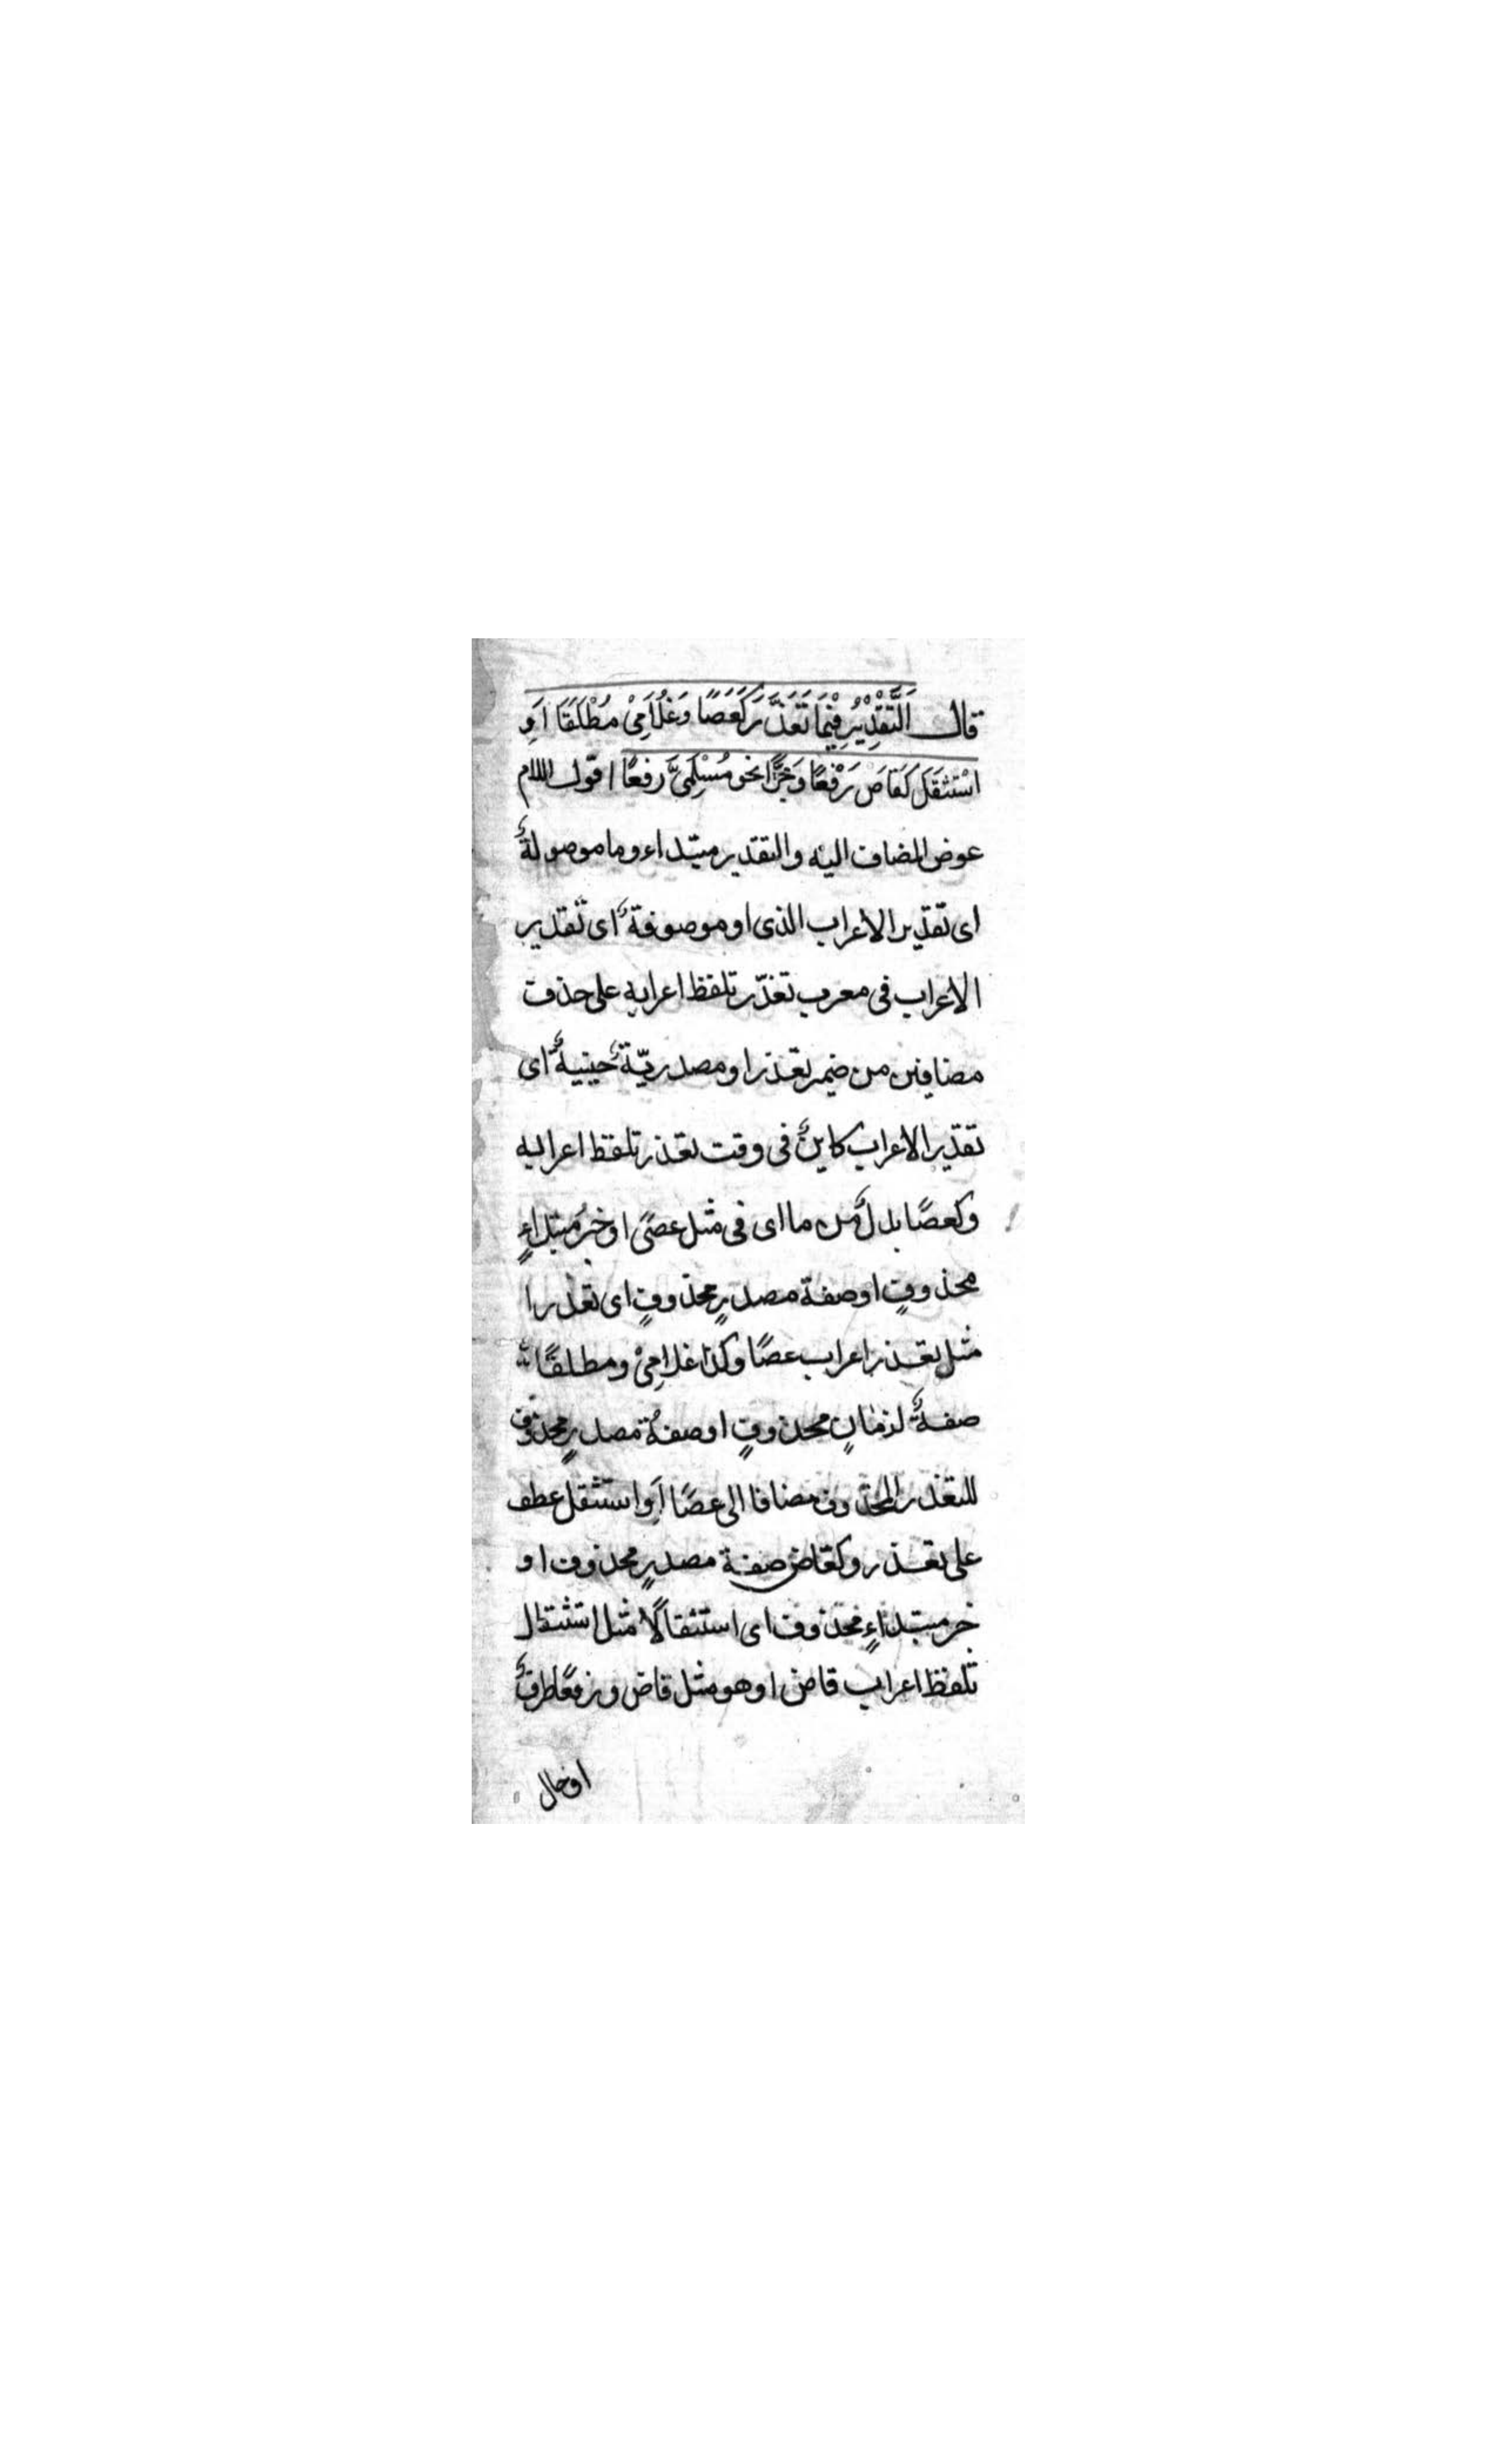 قال اَلتَّقْدِيْرُ فِيْمَا تَعَذَّرَ كَعَصًا وَغُلَامِىْ مُطْلَقًا اَوِ
اسْتُثْقِلَ كَقَاضٍ رَفْعًا وَجَرًّا نحو مُسْلِمِىَّ رفعًا اقول اللام
عوض المضاف اليه والتقدير مبتداء وما موصولةٌ
اى تقدير الاعراب الذى او موصوفةٌ اى تقدير
الاعراب فى معرب تعذّر تلفظ اعرابه على حذف
مضافين من ضمير تعذر او مصدريّةٌ حينيةٌ اى
تقدير الاعراب كاينٌ فى وقت تعذر تلفظ اعرابه
وكعصًا بدلٌ من ما اى فى مثل عصًى او خبرُ مبتداءٍ
محذوفٍ او صفة مصدرٍ محذوفٍ اى تعذرا
مثل تعذر اعراب عصًا وكذا غلامِىْ ومطلقًا
صفةٌ لزمانٍ محذوفٍ او صفةُ مصدرٍ محذوف
للتعذر المحذوف مضافا الى عصًا اَوِ استثقل عطف
على تعذر وكقاض صفة مصدرٍ محذوف او
خبر مبتداءٍ محذوف اى استثقالًا مثل استثقال
تلفظ اعراب قاض او هو مثل قاض ورفعًا ظرفٌ
او حال